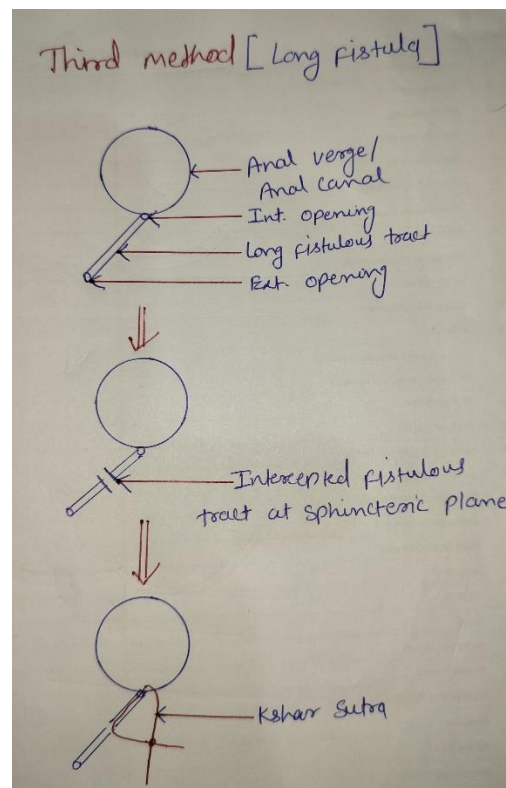 Third method [Long fistula]
Anal verge/
Anal canal
Int. opening
Long fistulous tract
Ext. opening
Intercepted fistulous
tract at sphincteric plane
Kshar Sutra